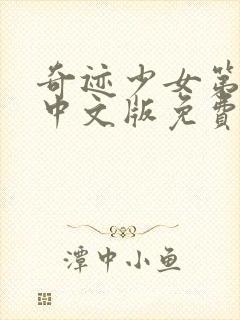 奇迹少女第
中文版免费
潭中小鱼